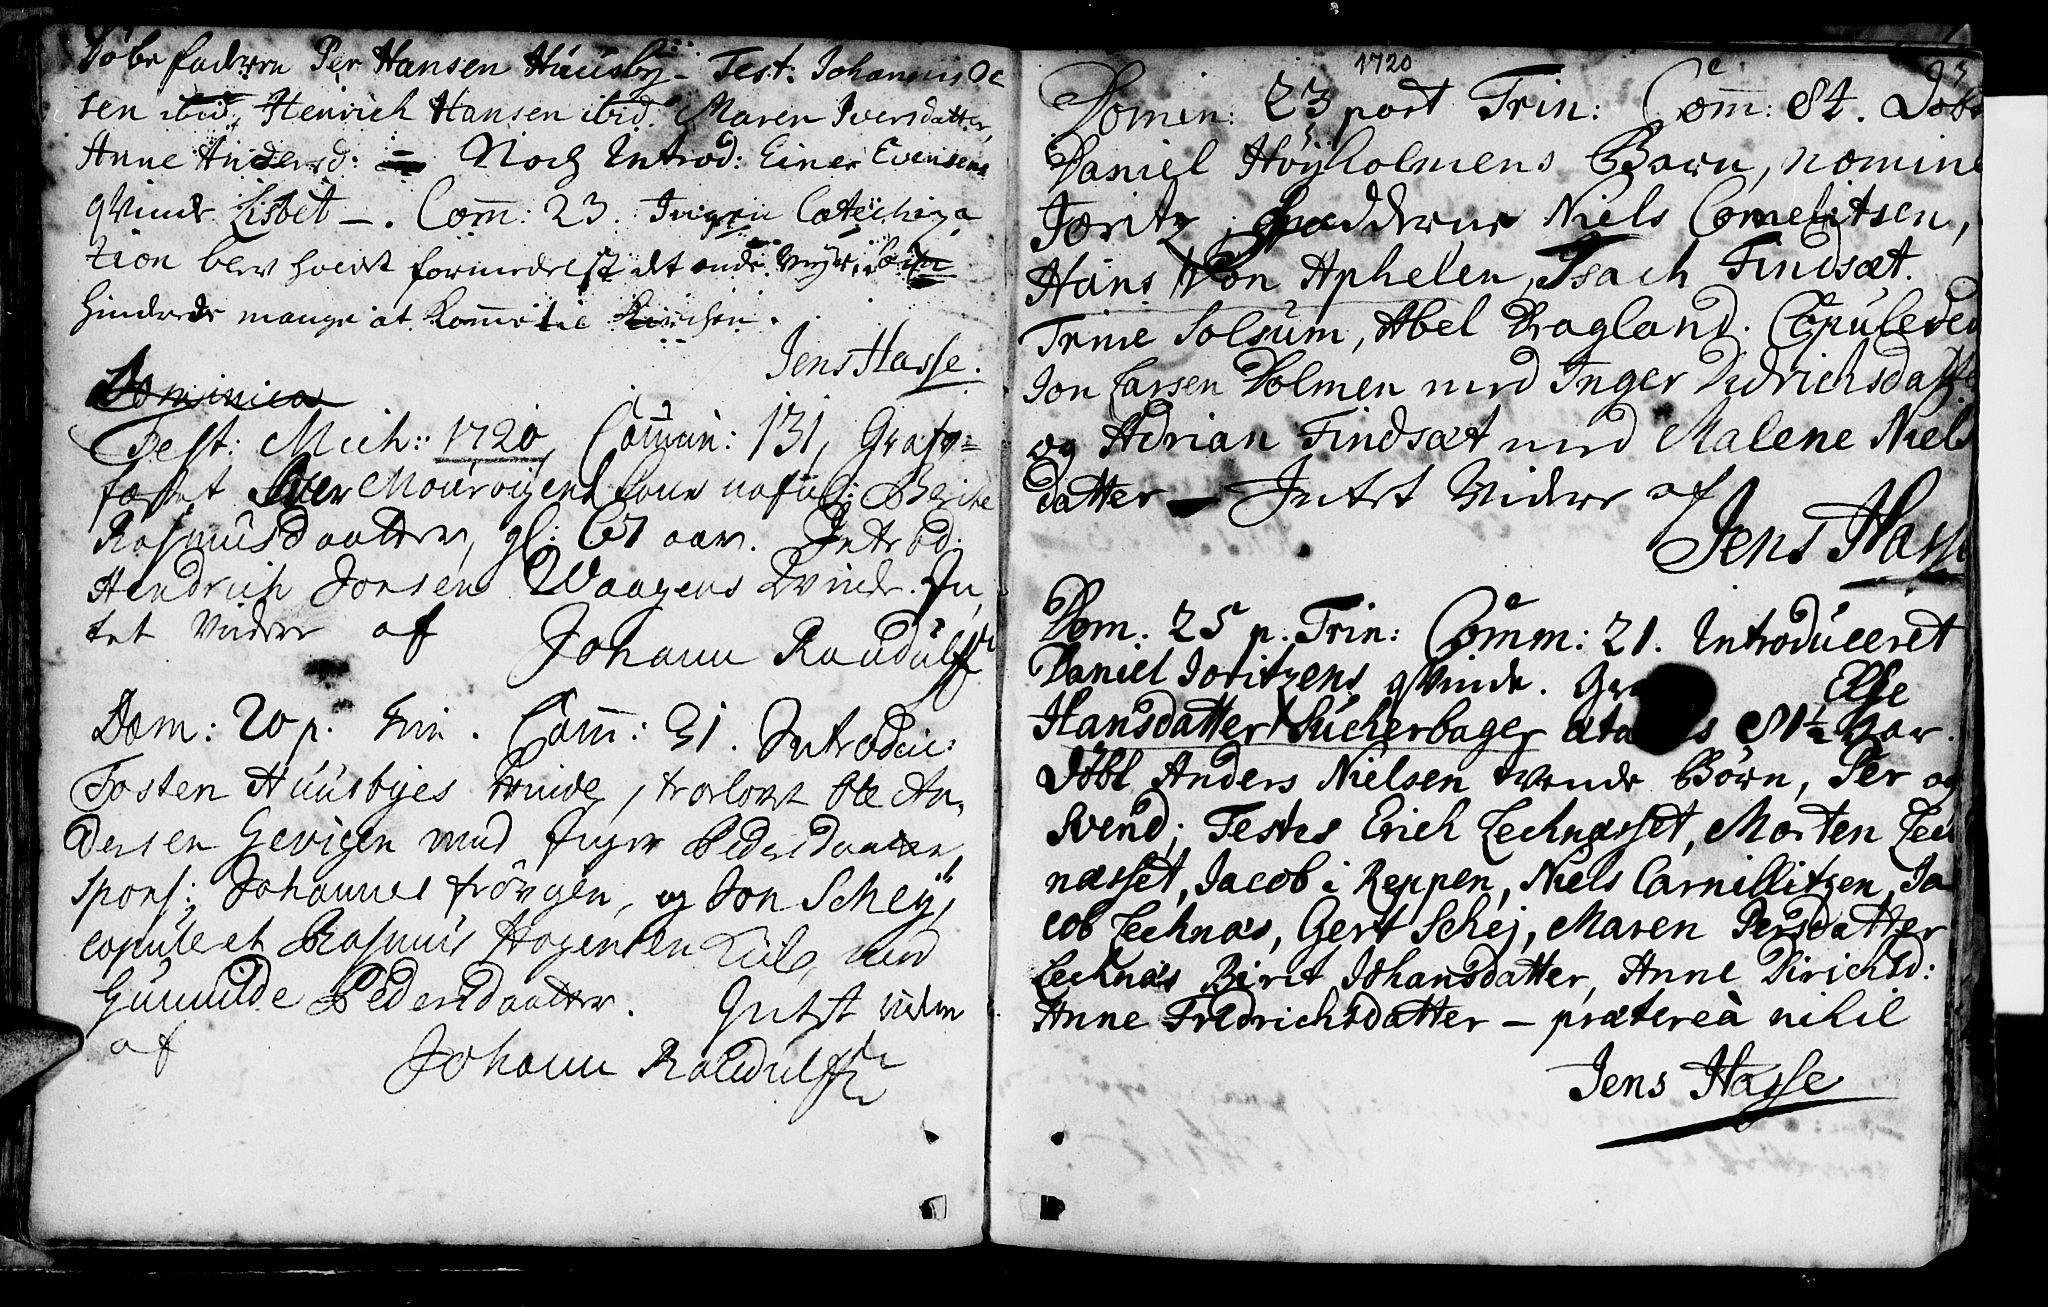 Døbefaderen Per Hansen Húúsby - Test: Johannis Ol
sen ibid. Henrich Hansen ibid. Maren Iversdatter,
Anne Andersd: = Noch Introd: Einer Evensens
qvinde Lisbet -. Com̄: 23. Ingen Catechiza
tion blev holdt formedelst det onde Veyr,
hinderede mange at kom̄e til Kirchen.
Jens Hasse.
Dominica
Fest: Mich: 1720, Com̄un: 131, Grafv=
fæstet Iver
Rasmusdaatter, gl: 67 aar. Introd:
Hendrich Jonsens Waagens Qvinde. In,
tet Videre af
Johann Randulff
Dom: 20 p. Trin. Com̄: 31. Introduc:
Tosten Húúsbyes Qvinde, trolovet Ole An,
dersen Gevigen med Inger Pedersdaatter,
spons: Johannes Frøvgen, og Jon Scheÿ,
copuleret Rasmus Hagensen med
Gunnilde Pedersdaatter. Intet viidere
af
Johann Randulff
1720
Domin: 23 post Trin: Com̄: 84. Døbt
Daniel Høyholmens Barn, nomine
Joritz, Fadderne Niels Cornelitsen,
Hans Von Aphelen, Isach Findsæt.
Trine Solsum, Abel Dragland. Copulered
Jon Larsen Holmen med Inger Didrichsdatter
og Adrian Findsæt med Malene Niels
datter - Intet Videre af
Jens Hasse
Dom. 25 p. Trin: Comm: 21. Introduceret
Daniel Joritzens qvinde. Else
Hansdatter Sucherbager 81½ Aar.
Døbt Anders Nielsen tvende Børn, Per og
Svend; Testes Erich Lechnæsset, Morten Lech
næsset, Jacob i Reppen, Niels Carnillitzen, Ja
cob Lechnæs, Gert Schej, Maren Persdatter
Lechnæs Birit Johansdatter, Anne Dirichsd:
Anne Fredrichsdatter - prætereà nihil
Jens Hasse